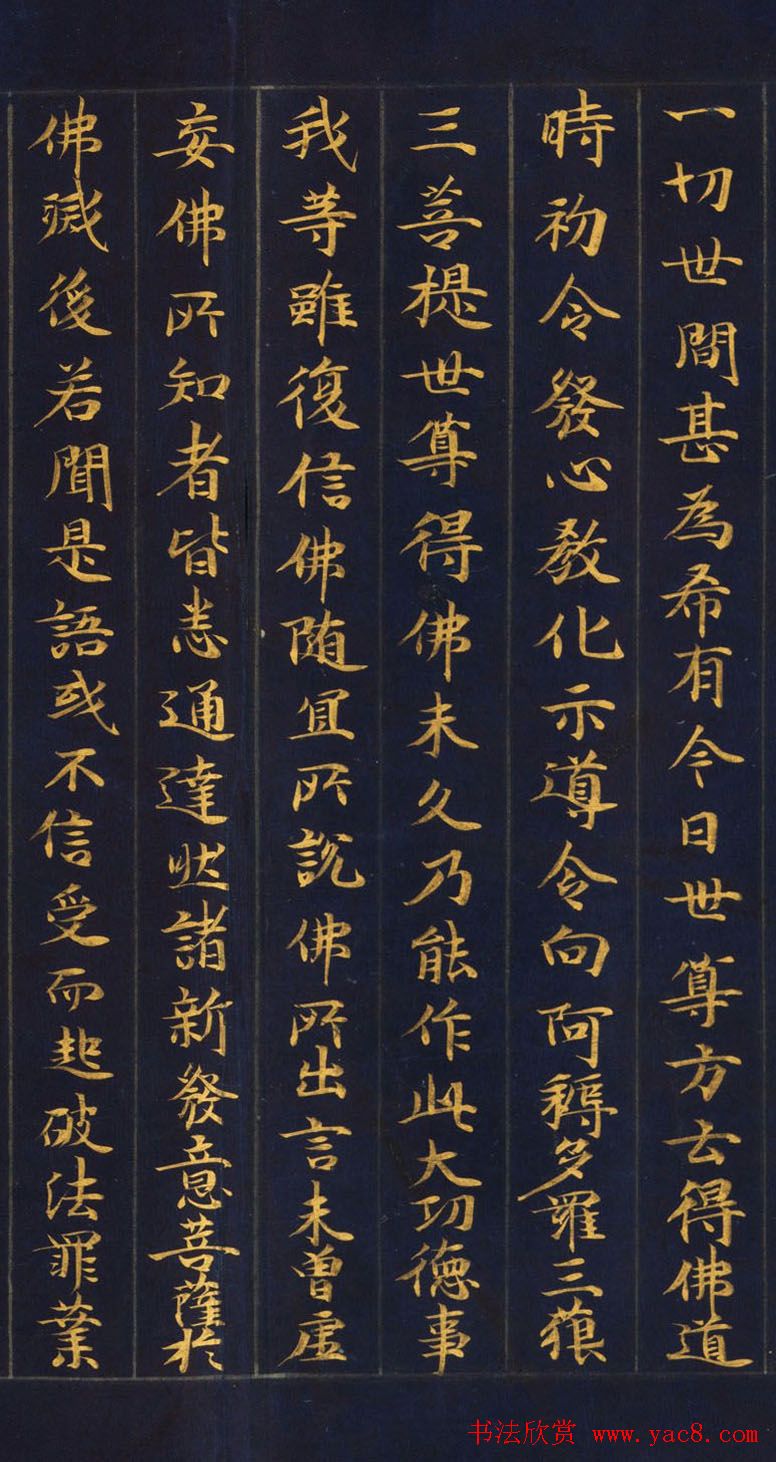 一切世間甚為希有今日世尊方云得佛道
時初令發心教化示導令向阿耨多羅三藐
三菩提世尊得佛未久乃能作此大功德事
我等雖復信佛随宜所說佛所出言未曽虛
妄佛所知者皆悉通達然諸新發意菩薩於
佛滅後若聞是語或不信受而起破法罪業
书法欣赏 www.yac8.com